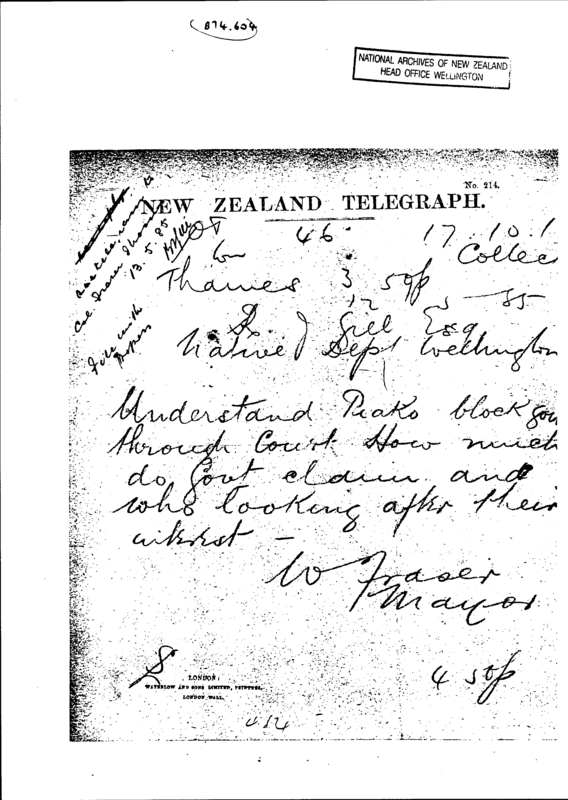 874.604
NATIONAL ARCHIVES OF NEW ZEALAND
HEAD OFFICE WELLINGTON
No. 214.
NEW ZEALAND TELEGRAPH.
46 17.10.1
Collec
Thames 3 50p
12 5 - 85
Gill Esq
Native Dept Wellington
13.5.85
File with
papers
Understand Piako block goi
through Court How much
do Govt claim and
who looking after their
interest -
W Fraser
Mayor
LONDON:
WATERLOW AND SONS LIMITED, PRINTERS,
LONDON WALL.
4 50p